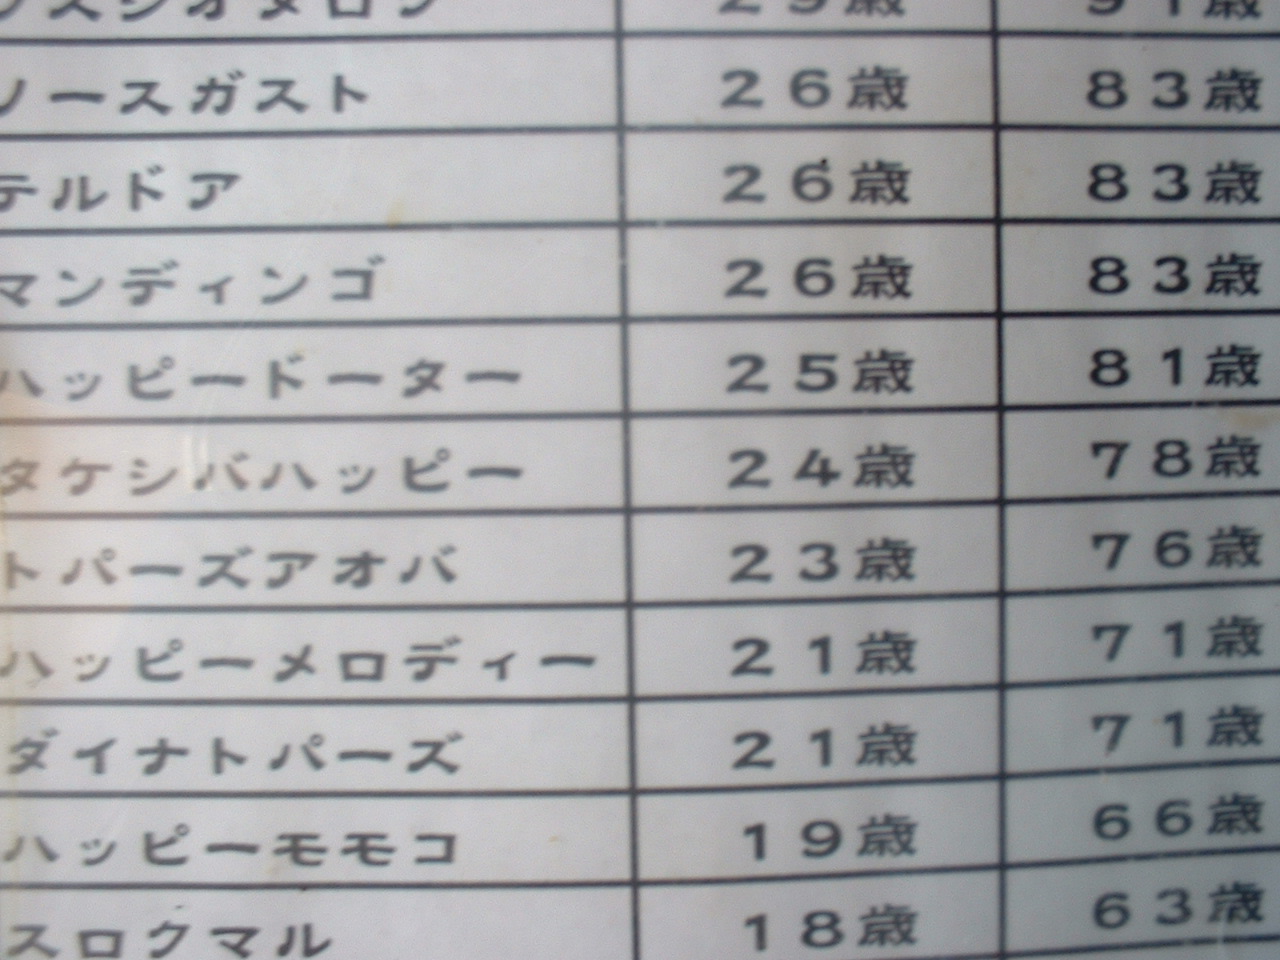 ノースガスト 26歳 83歳
テルドア 26歳 83歳
マンディンゴ 26歳 83歳
ハッピードーター 25歳 81歳
タケシバハッピー 24歳 78歳
トパーズアオバ 23歳 76歳
ハッピーメロディー 21歳 71歳
ダイナトパーズ 21歳 71歳
ハッピーモモコ 19歳 66歳
スロクマル 18歳 63歳